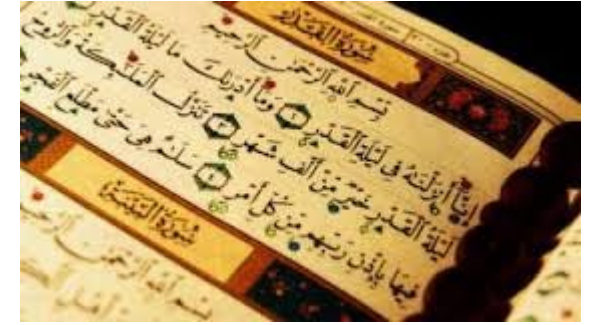 سُورَةُ القَدْرِ
بِسْمِ اللَّهِ الرَّحْمَٰنِ الرَّحِيمِ
إِنَّا أَنزَلْنَٰهُ فِى لَيْلَةِ الْقَدْرِ ١ وَمَا أَدْرَىٰكَ مَا لَيْلَةُ الْقَدْرِ
لَيْلَةُ الْقَدْرِ خَيْرٌ مِّنْ أَلْفِ شَهْرٍ ٣ تَنَزَّلُ الْمَلَٰئِكَةُ وَالرُّوحُ
فِيهَا بِإِذْنِ رَبِّهِم مِّن كُلِّ أَمْرٍ ٤ سَلَٰمٌ هِىَ حَتَّىٰ مَطْلَعِ الْفَجْرِ
سُورَةُ البَيِّنَةِ
بِسْمِ اللَّهِ الرَّحْمَٰنِ الرَّحِيمِ